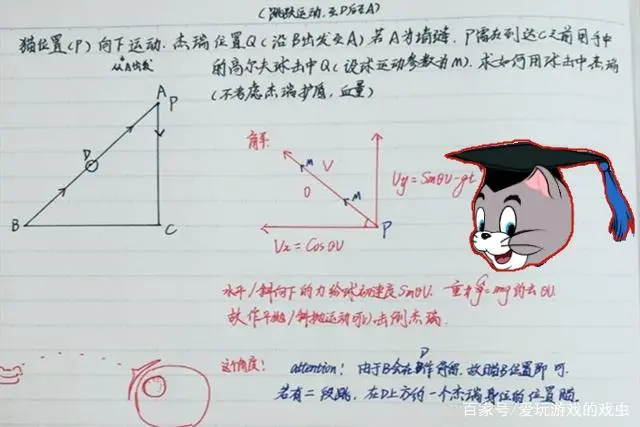 (跳跃运动,至D后至A)
猫位置(P)向下运动.杰瑞位置Q(沿B出发至A)若A为墙缝,P需在到达C之前用手中
从A出发
的高尔夫球击中Q(设球运动参数为m).求如何用球击中杰瑞
(不考虑杰瑞护盾,血量)
A
P
D
B
C
解:
M
V
M
P
Vy=SinθV-gt
Vx=CosθV
水平/斜向下的力给球初速度SinθV.
故作平抛/斜抛运动可击倒杰瑞.
这个角度!
attention!由于B会在
故瞄B位置即可.
若有二段跳,在D上方的一个杰瑞身位的位置瞄。
百家号/爱玩游戏的戏虫